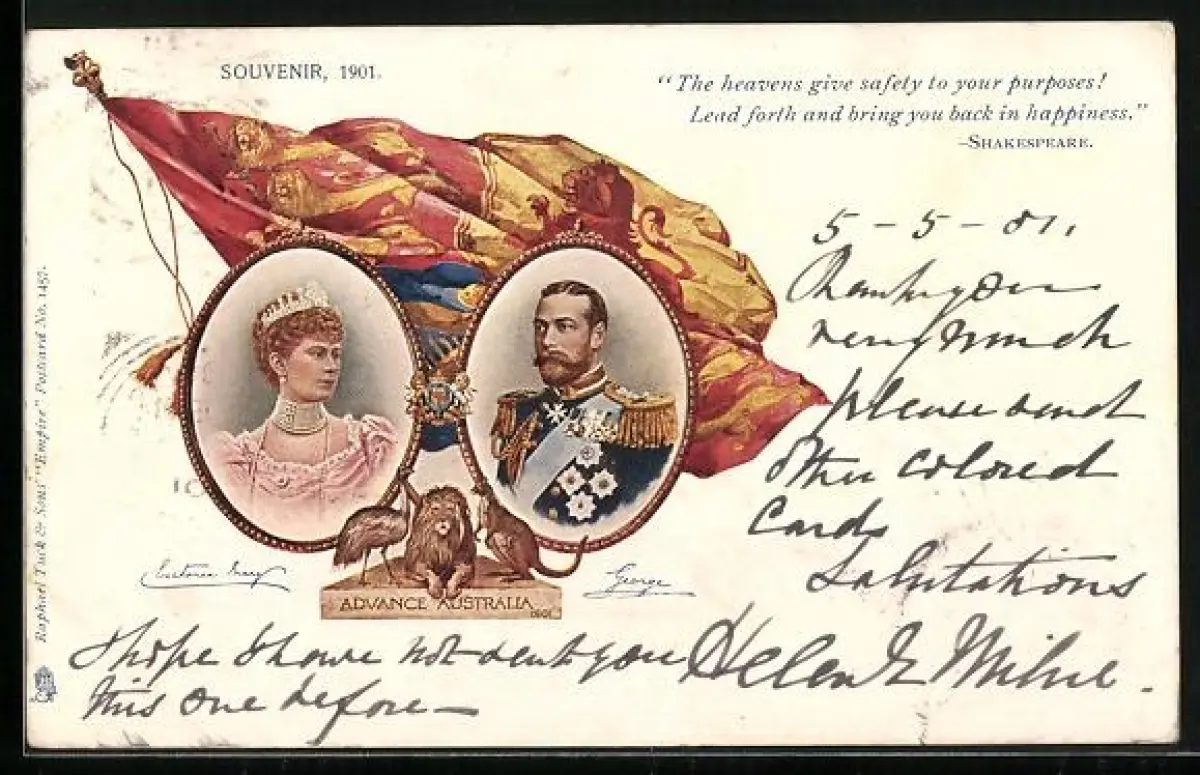 SOUVENIR, 1901.
"The heavens give safety to your purposes!
Lead forth and bring you back in happiness."
–SHAKESPEARE.
5 – 5 – 01.
Thank you
very much
please send
other colored
cards
Salutations
Helen E Milne.
I hope I have not sent you
this one before –
Victoria Mary
George
ADVANCE AUSTRALIA
1901
Raphael Tuck & Sons' "Empire" Postcard No. 1457.